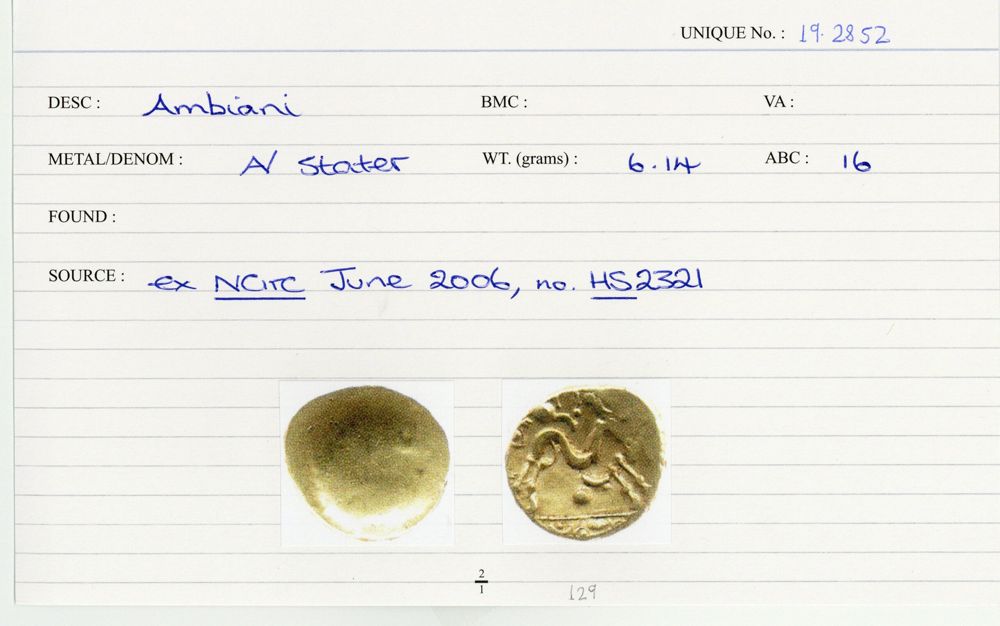 UNIQUE No. : 19.2852
DESC : Ambiani BMC : VA :
METAL/DENOM : A/ Stater WT. (grams) : 6.14 ABC : 16
FOUND :
SOURCE : ex NCirc June 2006, no. HS2321
2
1
129